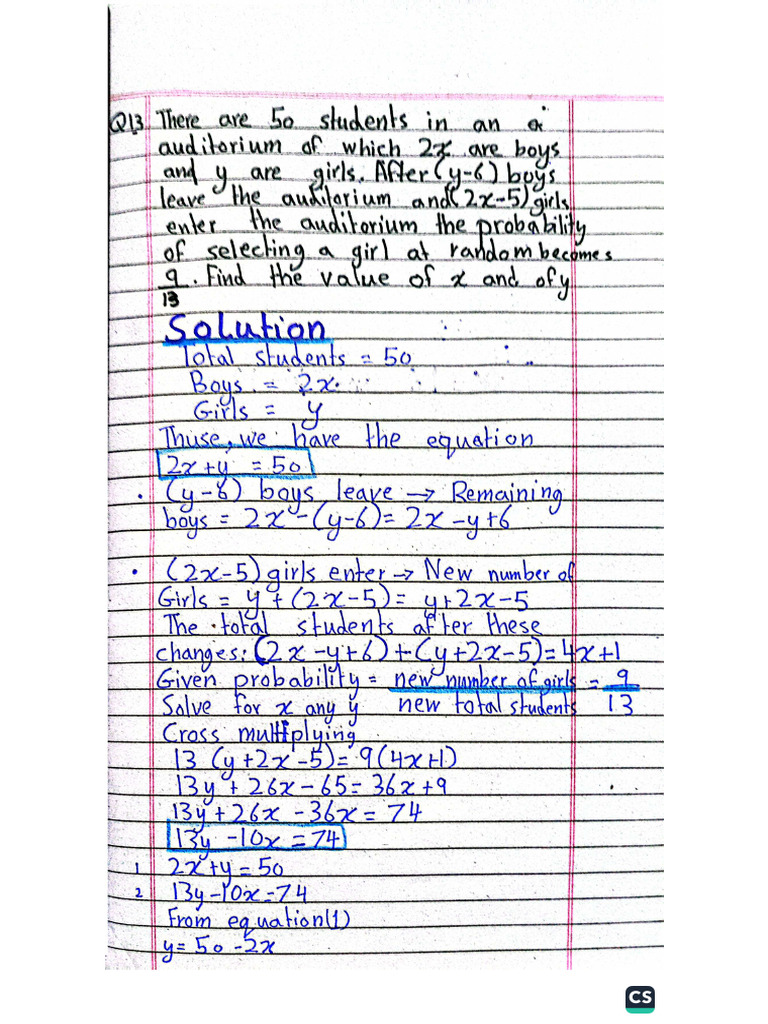 Q13 There are 50 students in an a
auditorium of which 2x are boys
and y are girls. After (y-6) boys
leave the auditorium and (2x-5) girls
enter the auditorium the probability
of selecting a girl at random becomes
9/13. Find the value of x and of y
Solution
Total students = 50
Boys = 2x.
Girls = y
Thuse, we have the equation
2x+y = 50
• (y-6) boys leave → Remaining
boys = 2x-(y-6) = 2x-y+6
• (2x-5) girls enter → New number of
Girls = y+(2x-5) = y+2x-5
The total students after these
changes: (2x-y+6)+(y+2x-5)=4x+1
Given probability = new number of girls = 9
Solve for x any y new total students 13
Cross multiplying
13 (y+2x-5)=9(4x+1)
13y + 26x-65=36x+9
13y+26x-36x=74
13y-10x=74
1 2x+y=50
2 13y-10x=74
From equation(1)
y=50-2x
CS